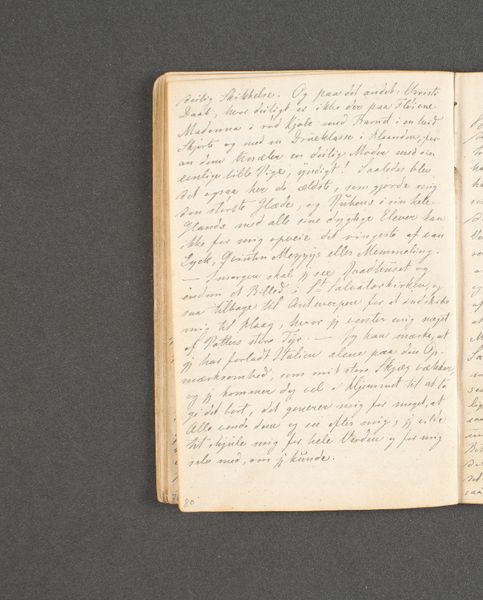 deilig Skikkelse. Og paa det andet: Christi
Daab, hvor deiligt er ikke der paa Fløiene
Madonna i rød Kjole med Barnet i en hvid
Skjorte og med en Drueklasse i Haanden, for-
an dem knæler en deilig Moder med sin
eenlige lille Pige, yndigt! Saaledes blev
det ogsaa her de ældste, som gjorde mig
den største Glæde, og Rubens i sin hele
Glands med alle sine dygtige Elever kan
ikke for mig opveie det ringeste af van
Eyck, Quintin Messys eller Memmeling.
— Imorgen skal jeg see Raadhuset og
endnu et Billed i St Salvatorkirken, og
saa tilbage til Antwerpen for at indskibe
mig til Haag, hvor jeg venter mig meget
af Potters store Tyr. — Jeg kan mærke, at
jeg har forladt Italien alene paa den Op-
mærksomhed, som mit store Skjæg vækker,
og jeg kommer dog vel i Hjemmet til at ta-
ge det bort, det generer mig for meget, at
Alle vende dem og see efter mig; jeg vilde
helst skjule mig for hele Verden og for mig
selv med, om jeg kunde.
80